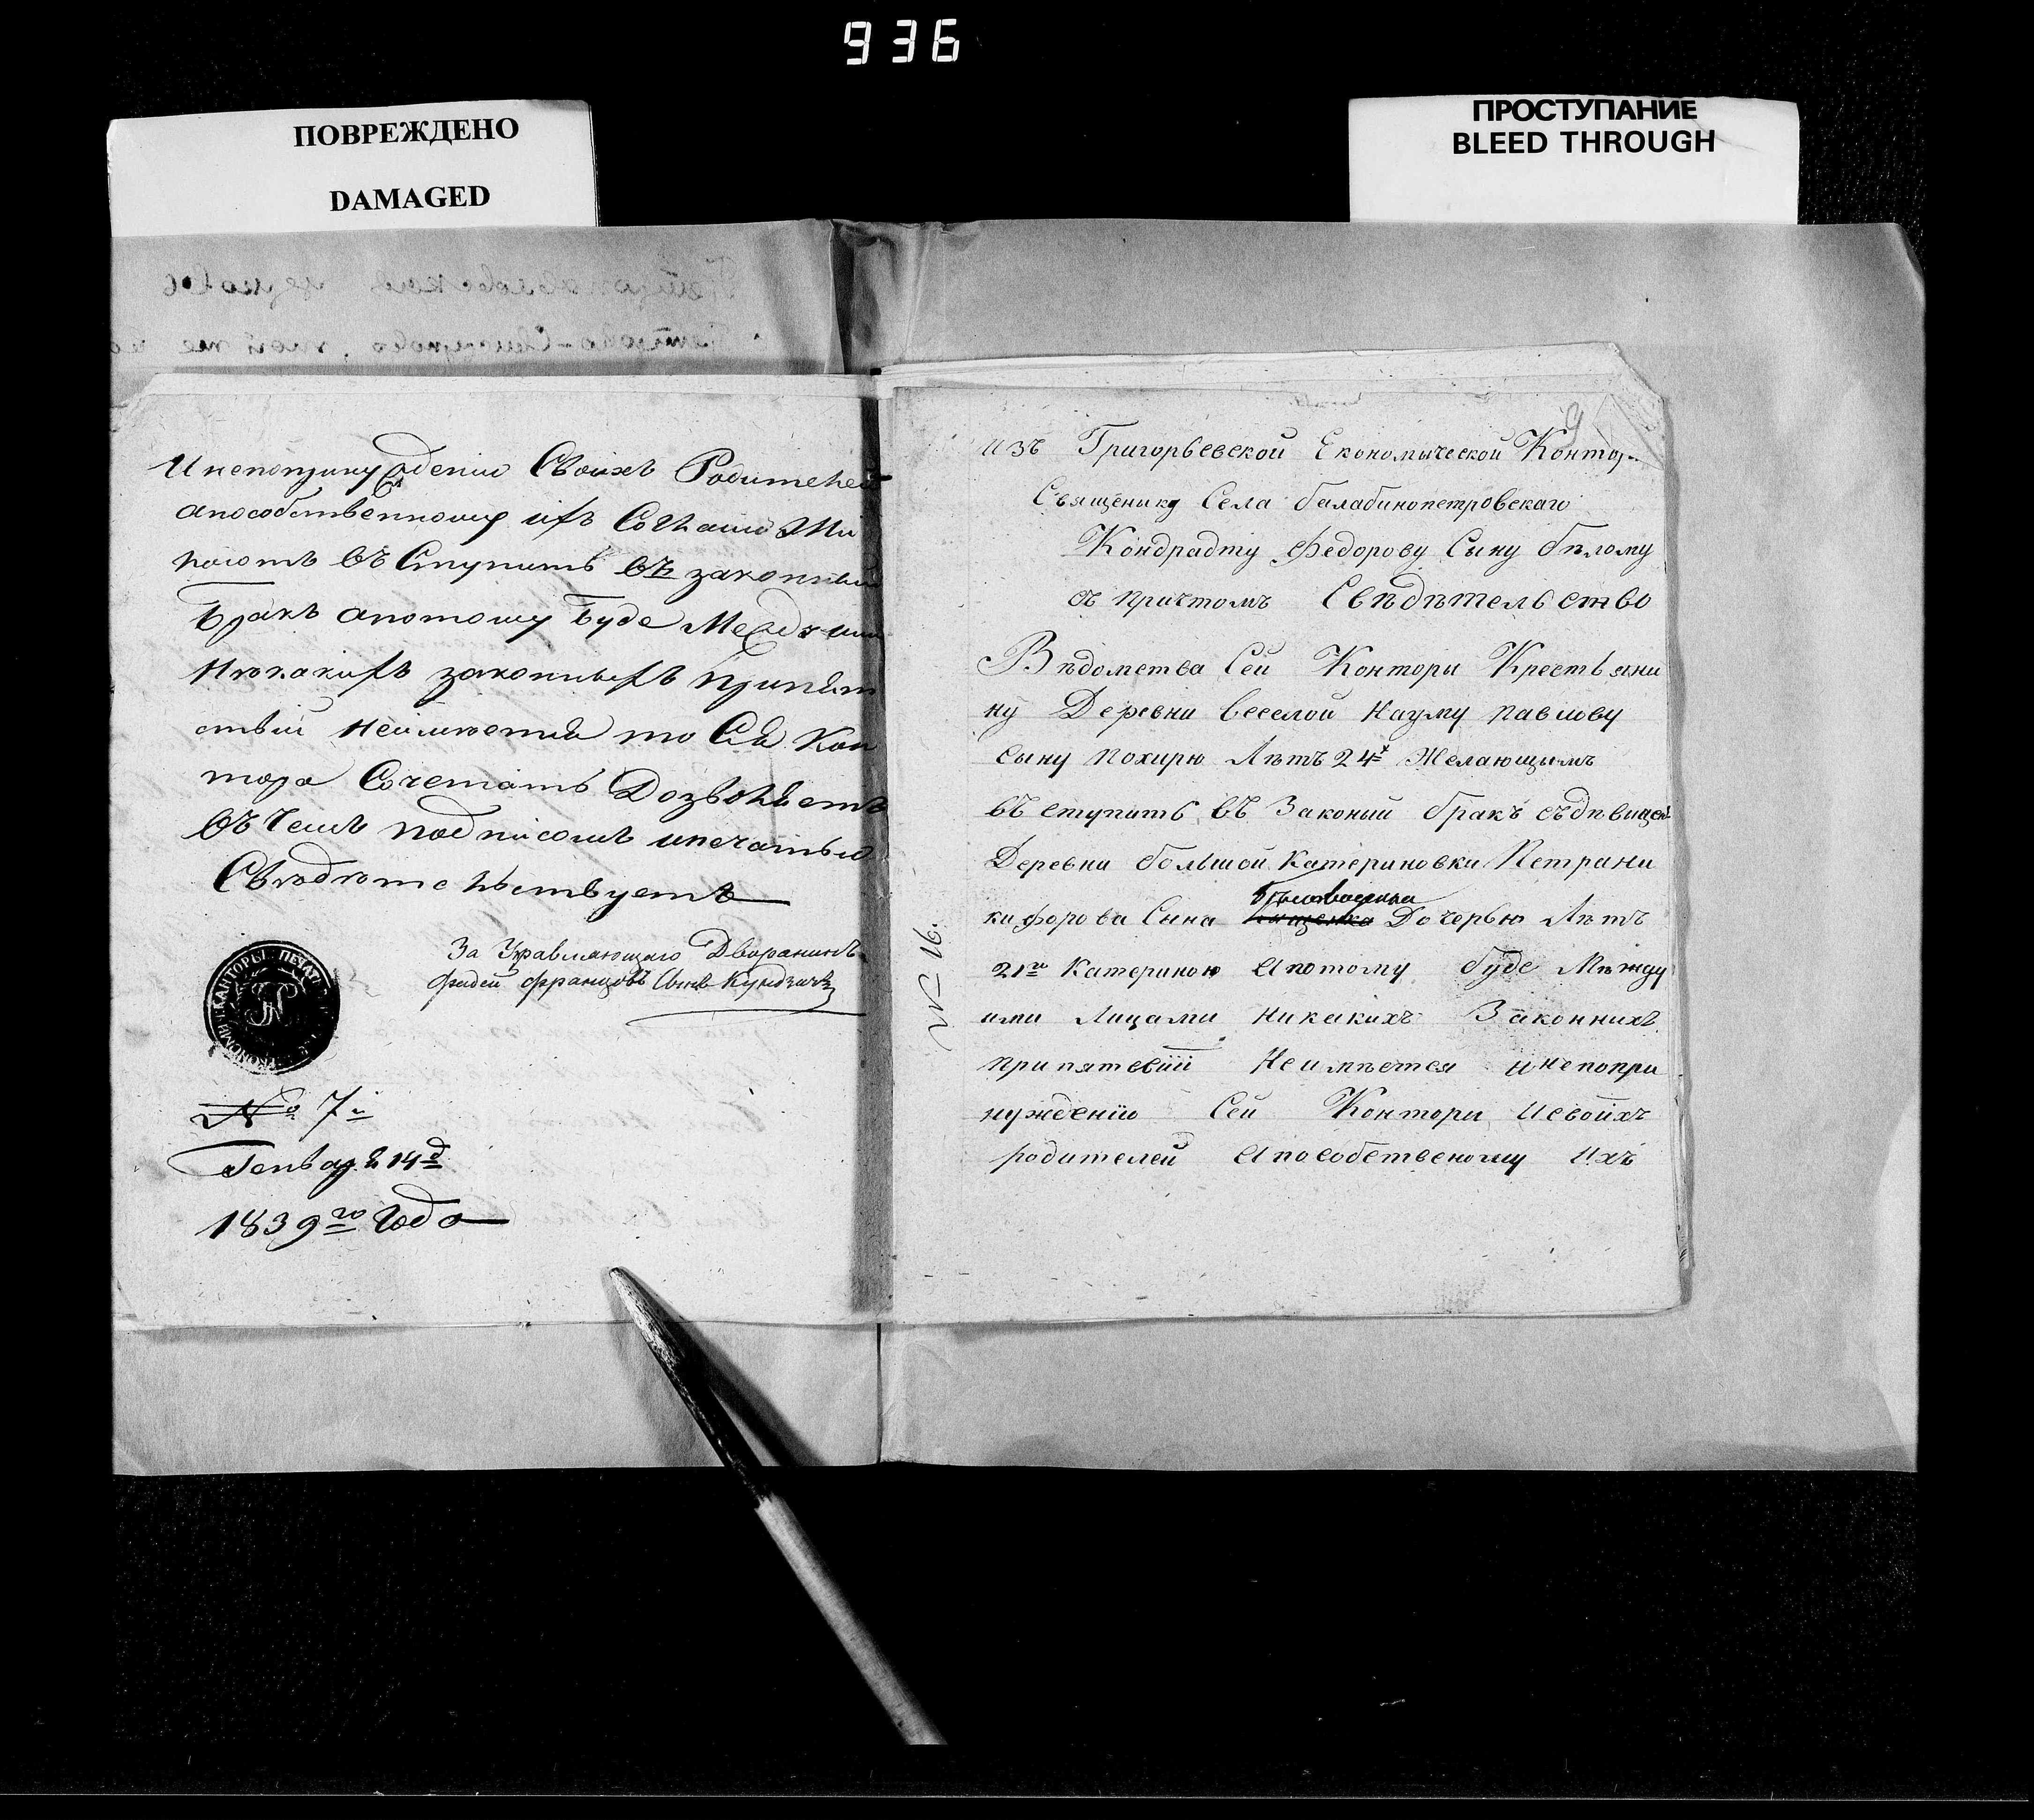 936
ПОВРЕЖДЕНО
DAMAGED
ПРОСТУПАНИЕ
BLEED THROUGH
Инепопринуждению Своихъ Родителей
апособственному ихъ Согласию Жи
лаютъ въ Ступить въ законный
бракъ апотому буде Между ими
Ниякихъ законныхъ Препят
ствий неимеется то Сия Кон
тора Сочетать Дозволяетъ
въ Чемъ подписомъ ипечатью
Свѣдѣтельствуетъ
За Управляющаго Дворянинъ
Фадей Францовъ Сынъ Кундзичъ
№ 7й
Генваря 14д
1839го Года
9
изъ Григорьевской Економической Конто
Священику Села балабинопетровскаго
Кондрадту Федорову Сыну бѣлому
съ причтомъ Свѣдѣтельство
Вѣдомства Сей Контори Крестьяни
ну Деревни Веселой Науму павлову
сыну похирю Лѣтъ 24х Желающимъ
въ ступить въ Законий бракъ съдѣвицей
Деревни большой Катериновки Петра ни
кифорова Сина Дочерью Лѣтъ
21го Катериною Апотому буде Мѣжду
ими Лицами Никакихъ Законнихъ
припятствiй Неимѣется инепопри
нуждению Сей Контори исвоихъ
родителей Апособственому Ихъ